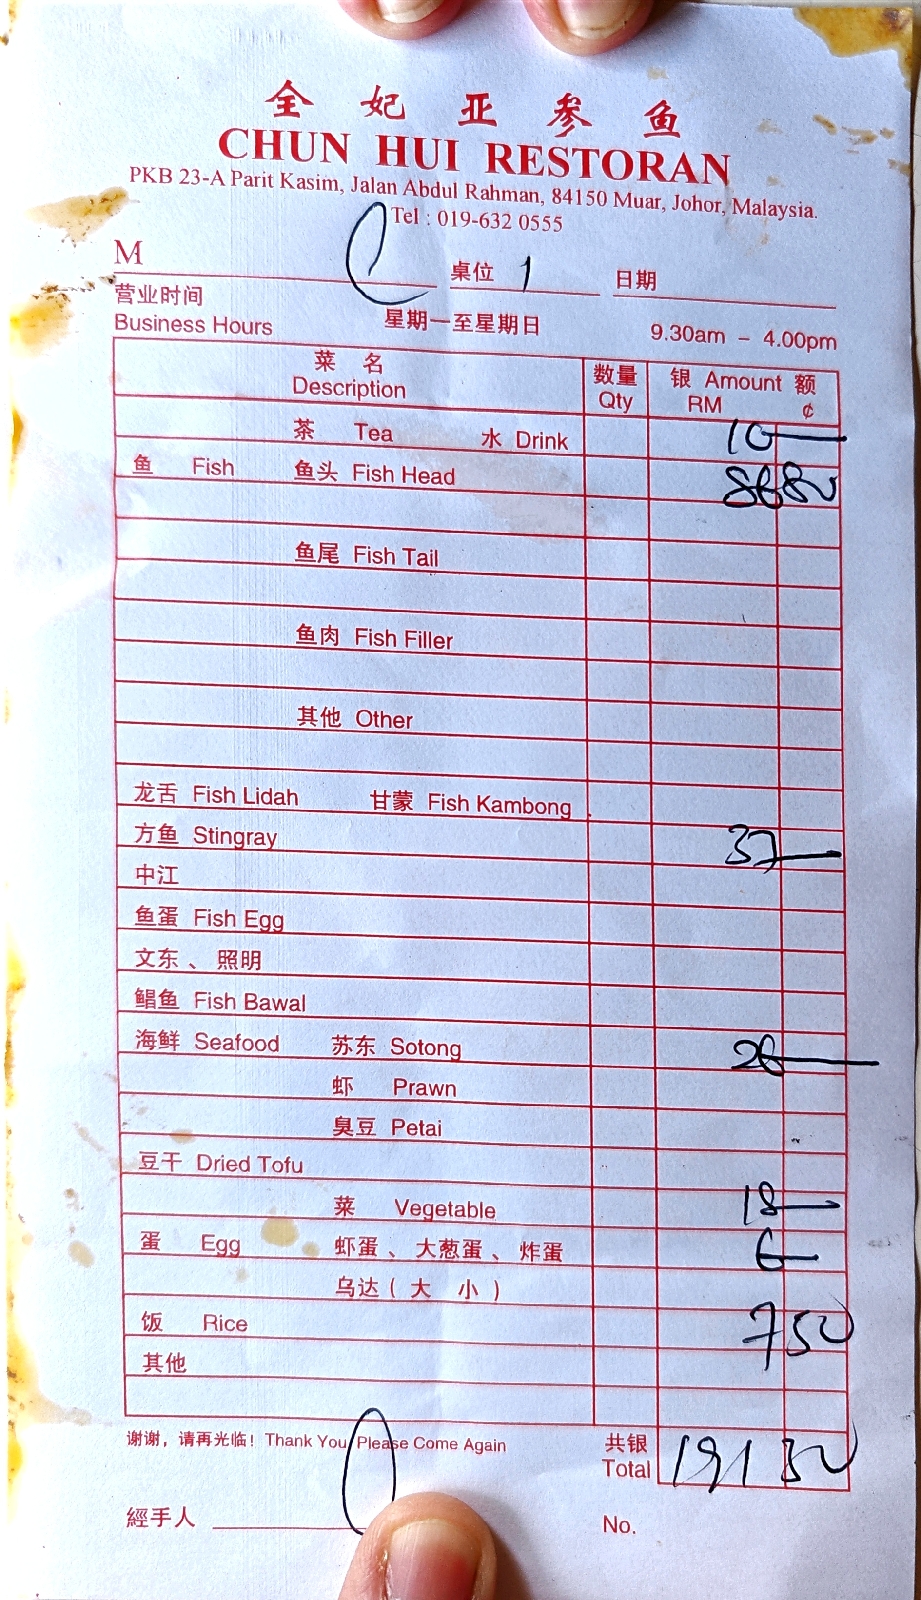 全妃亚参鱼
CHUN HUI RESTORAN
PKB 23-A Parit Kasim, Jalan Abdul Rahman, 84150 Muar, Johor, Malaysia.
Tel : 019-632 0555
M 桌位 1 日期
营业时间
Business Hours 星期一至星期日 9.30am - 4.00pm
菜名 数量 银 Amount 额
Description Qty RM ¢
茶 Tea 水 Drink 10 —
鱼 Fish 鱼头 Fish Head 86 80
鱼尾 Fish Tail
鱼肉 Fish Filler
其他 Other
龙舌 Fish Lidah 甘蒙 Fish Kambong
方鱼 Stingray 37 —
中江
鱼蛋 Fish Egg
文东、照明
鲳鱼 Fish Bawal
海鲜 Seafood 苏东 Sotong 26 —
虾 Prawn
臭豆 Petai
豆干 Dried Tofu
菜 Vegetable 18 —
蛋 Egg 虾蛋、大葱蛋、炸蛋 6 —
乌达 ( 大 小 )
饭 Rice 7 50
其他
谢谢，请再光临！Thank You Please Come Again 共银
Total 191 30
經手人 No.